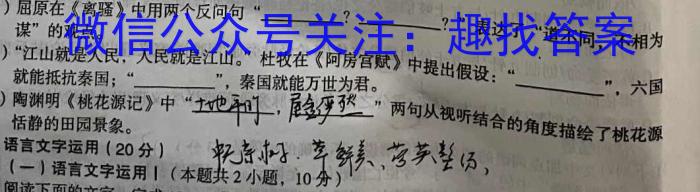 ）屈原在《离骚》中用两个反问句“＿＿＿？＿＿＿？”表达了“道不同，不相为
谋”的观点。
微信公众号关注：趣找答案
）“江山就是人民，人民就是江山。”杜牧在《阿房宫赋》中提出假设：“＿＿＿”，六国
就能抵抗秦国；“＿＿＿”，秦国就能万世为君。
）陶渊明《桃花源记》中“土地平旷，屋舍俨然”两句从视听结合的角度描绘了桃花源
恬静的田园景象。
语言文字运用（20分）
（一）语言文字运用Ⅰ（本题共2小题，10分）
阅读下面的文字，完成